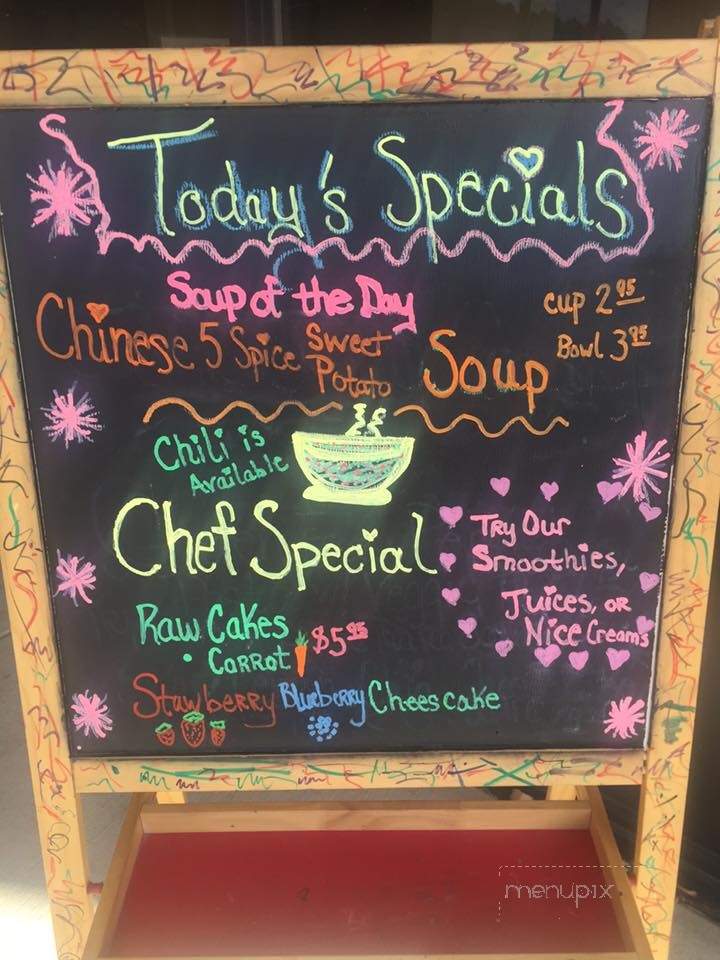 Today's Specials
Soup of the Day
Cup 2.95
Chinese 5 Spice Sweet Potato Soup
Bowl 3.95
Chili is
Available
Chef Special
Try Our
Smoothies,
Juices, or
Nice Creams
Raw Cakes
$5.95
• Carrot
Stawberry Blueberry Cheescake
menupix